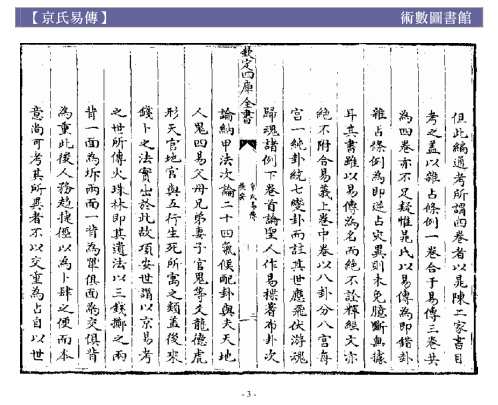 【京氏易傳】
術數圖書館
但此編通考所謂四卷者以晁陳二家書目
考之蓋以雜占條例一卷合于易傳三卷共
為四卷亦不足疑惟晁氏以易傳為即錯卦
雜占條例為即逆占災異則未免臆斷無據
耳其書雖以易傳為名而絶不詮釋經文亦
絶不附合易義上卷中卷以八卦分八宮每
宮一純卦統七變卦而註其世應飛伏游魂
歸魂諸例下卷首論聖人作易揲蓍布卦次
欽定四庫全書
京氏易傳
提要
二
論納甲法次論二十四氣候配卦與夫天地
人鬼四易父母兄弟妻子官鬼等爻龍德虎
形天官地官與五行生死所寓之類蓋後來
錢卜之法實出於此故項安世謂以京易考
之世所傳火珠林即其遺法以三錢擲之兩
背一面為坼兩面一背為單俱面為交俱背
為重此後人務趨捷徑以為卜肆之便而本
意尚可考其所異者不以交重為占自以世
- 3 -